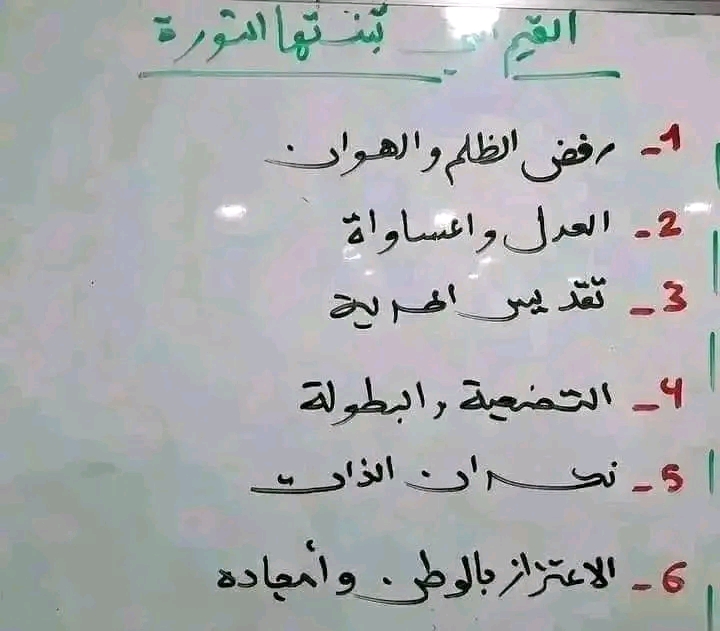 القيم التي تبنتها الثورة
1- رفض الظلم والهوان.
2- العدل والمساواة
3- تقديس الحرية
4- التضحية والبطولة
5- نكران الذات
6- الاعتزاز بالوطن وأمجاده